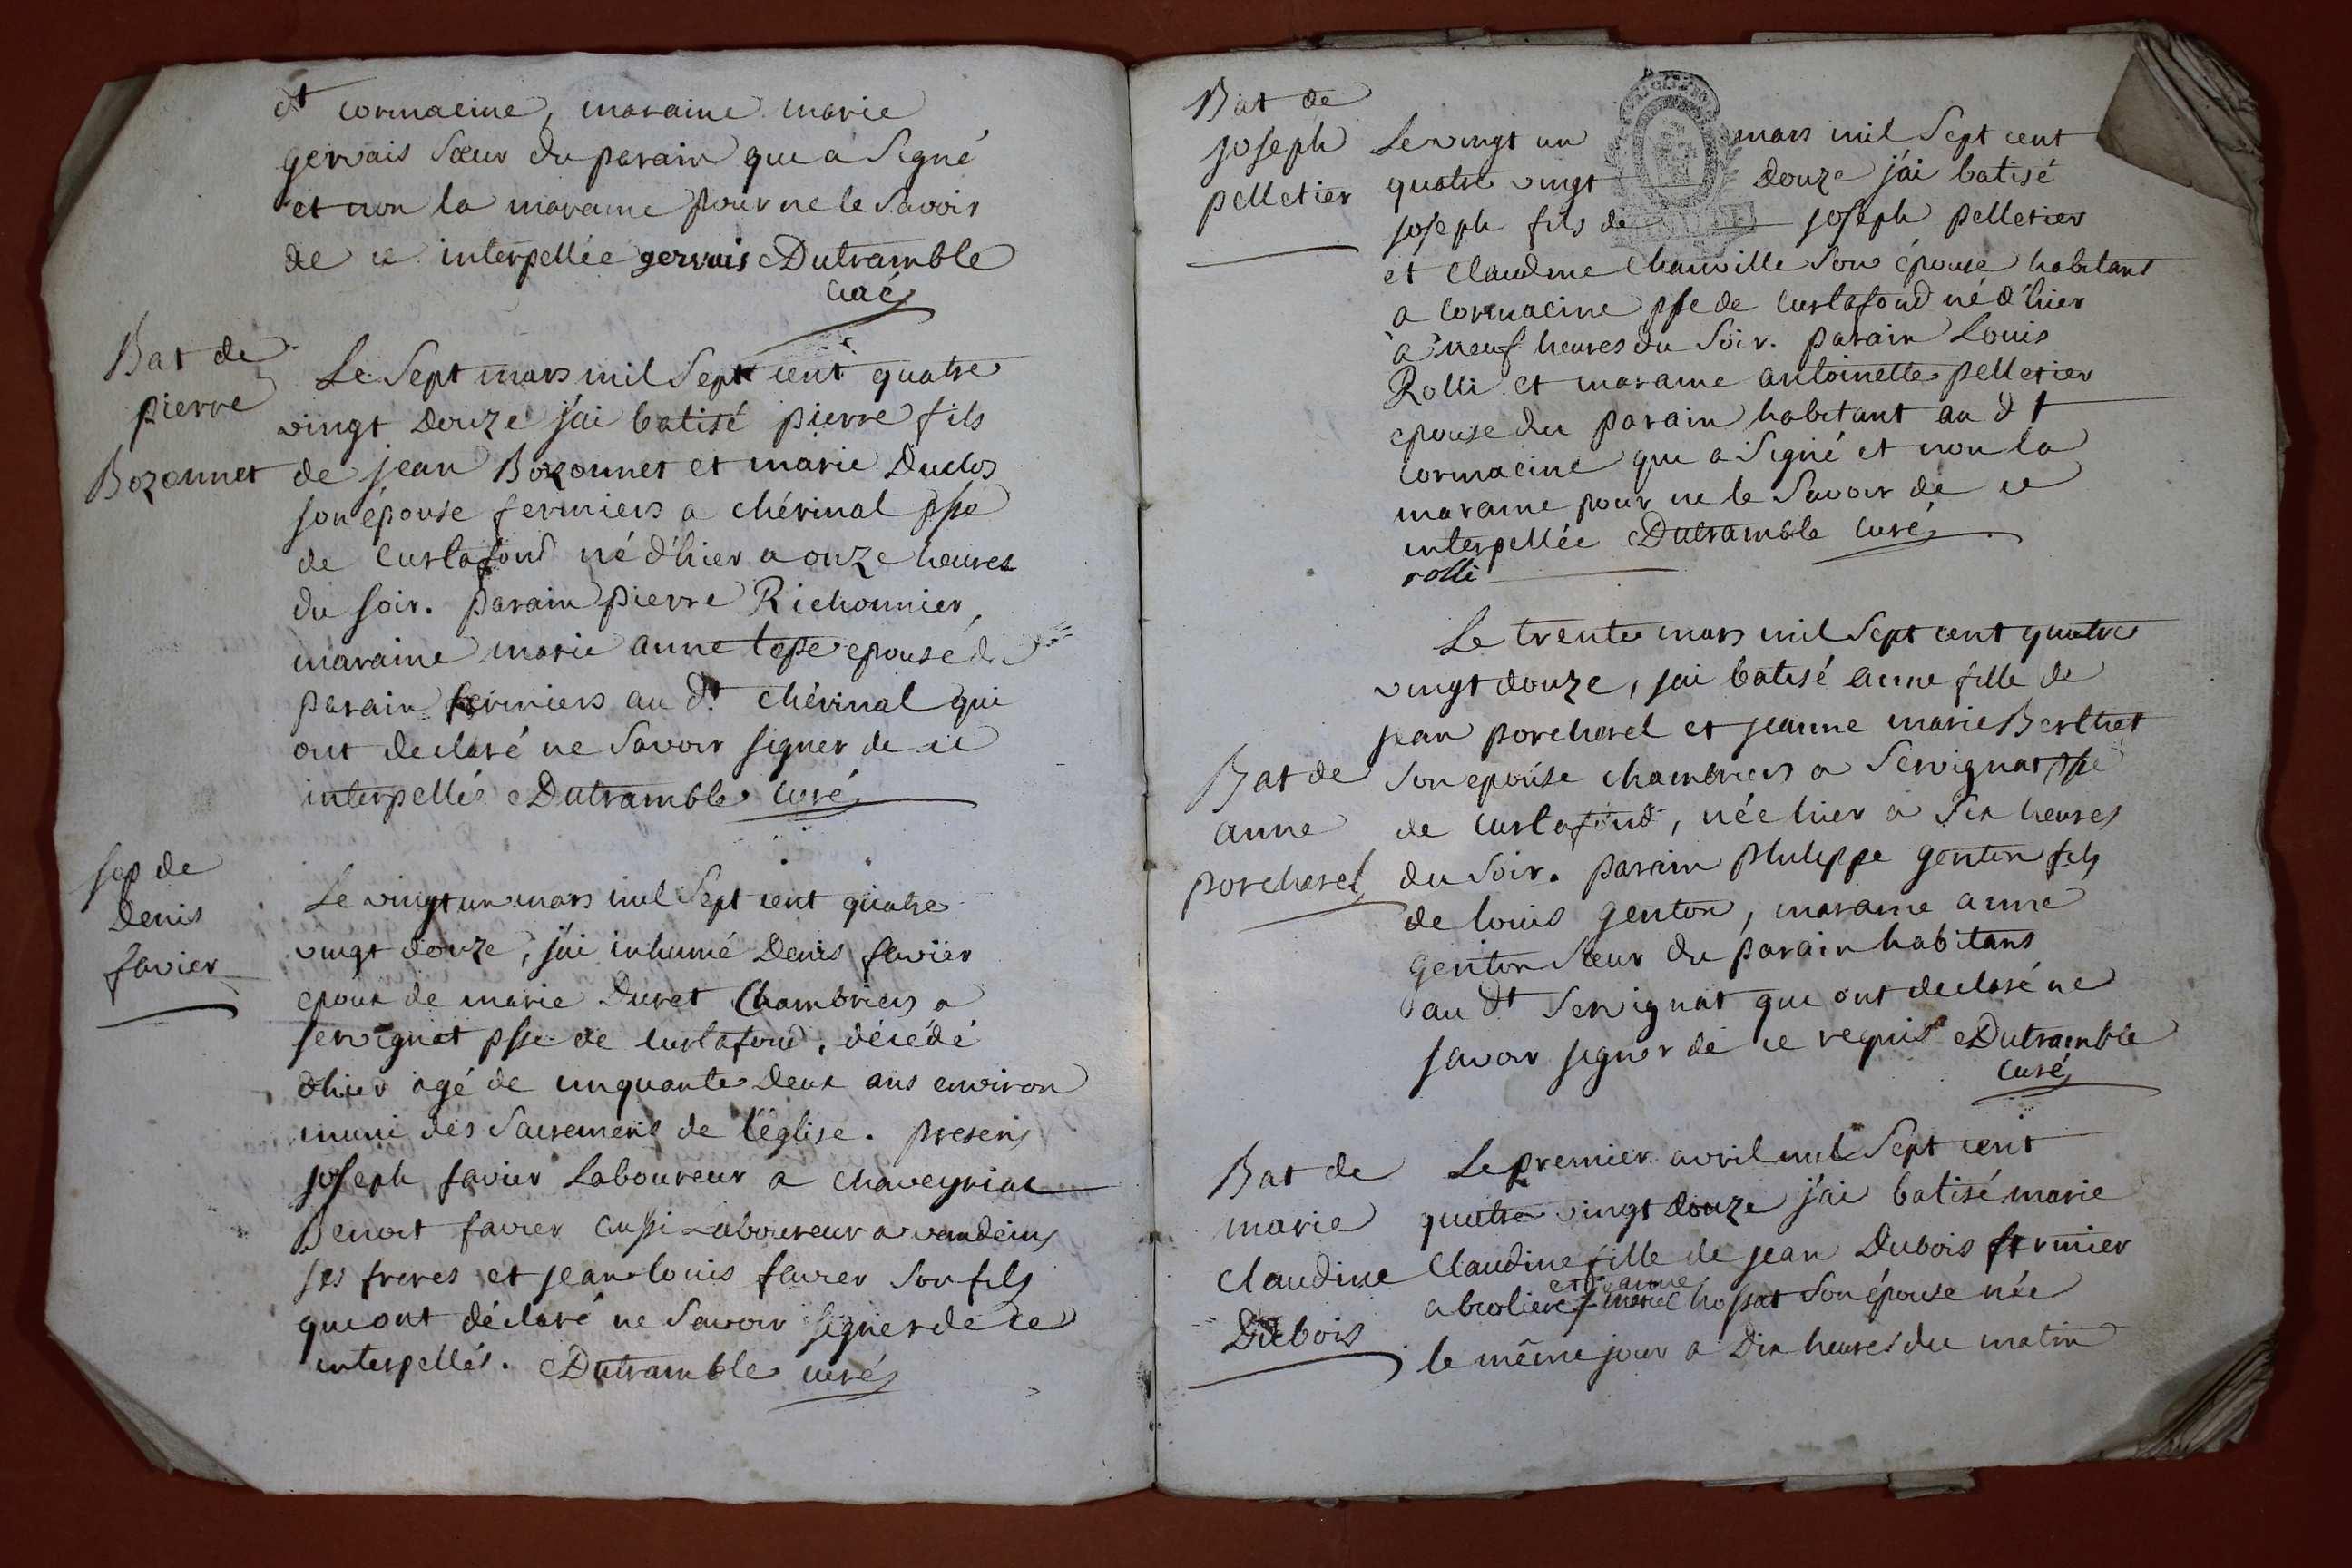 dt cormacine, maraine marie
gervais Sœur du parain qui a Signé
et non la maraine pour ne le Savoir
de ce interpellée gervais Dutramble
curé
Bat de
pierre
Bozonnet
Le Sept mars mil Sept cent quatre
vingt Douze j'ai batisé pierre fils
de jean Bozonnet et marie Duclos
son épouse fermiers a chérinal psse
de Curtafond né d'hier a onze heures
du soir. parain pierre Richonnier,
maraine marie anne tepe epouse du
parain fermiers au dt chérinal qui
ont declaré ne Savoir signer de ce
interpellés Dutramble curé
sep de
Denis
favier
Le vingt un mars mil Sept cent quatre
vingt douze, j'ai inhumé Denis favier
epoux de marie Duret Chambriers a
servignat psse de curtafond, décédé
d'hier agé de cinquante Deux ans environ
muni des Sacremens de l'église. presens
joseph favier Laboureur a chaveyriat
Benoit favier aussi Laboureur a vandeins
ses freres et jean louis favier son fils
qui ont déclaré ne Savoir signer de ce
interpellés. Dutramble curé
Bat de
joseph
pelletier
Le vingt un mars mil Sept cent
quatre vingt Douze j'ai batisé
joseph fils de joseph pelletier
et Claudine Chanville Son épouse habitans
a Cormacine psse de Curtafond né d'hier
a neuf heures du Soir. parain Louis
Rolli et maraine antoinette pelletier
epouse du parain habitant au dt
cormacine qui a Signé et non la
maraine pour ne le Savoir de ce
interpellée Dutramble curé
rolli
Bat de
anne
porcherel
Le trente mars mil Sept cent quatre
vingt douze, j'ai batisé anne fille de
jean porcherel et jeanne marie Berthet
Son epouse chambriers a Servignat psse
de curtafond, née hier a Six heures
du Soir. parain philippe genton fils
de louis genton, maraine anne
genton Sœur du parain habitans
au dt Servignat qui ont declaré ne
savoir signer de ce requis Dutramble
curé
Bat de
marie
Claudine
Dubois
Le premier avril mil Sept cent
quatre vingt Douze j'ai batisé marie
Claudine fille de jean Dubois fermier
et jeanne
a marie Chossat Son épouse née
le même jour a Dix heures du matin